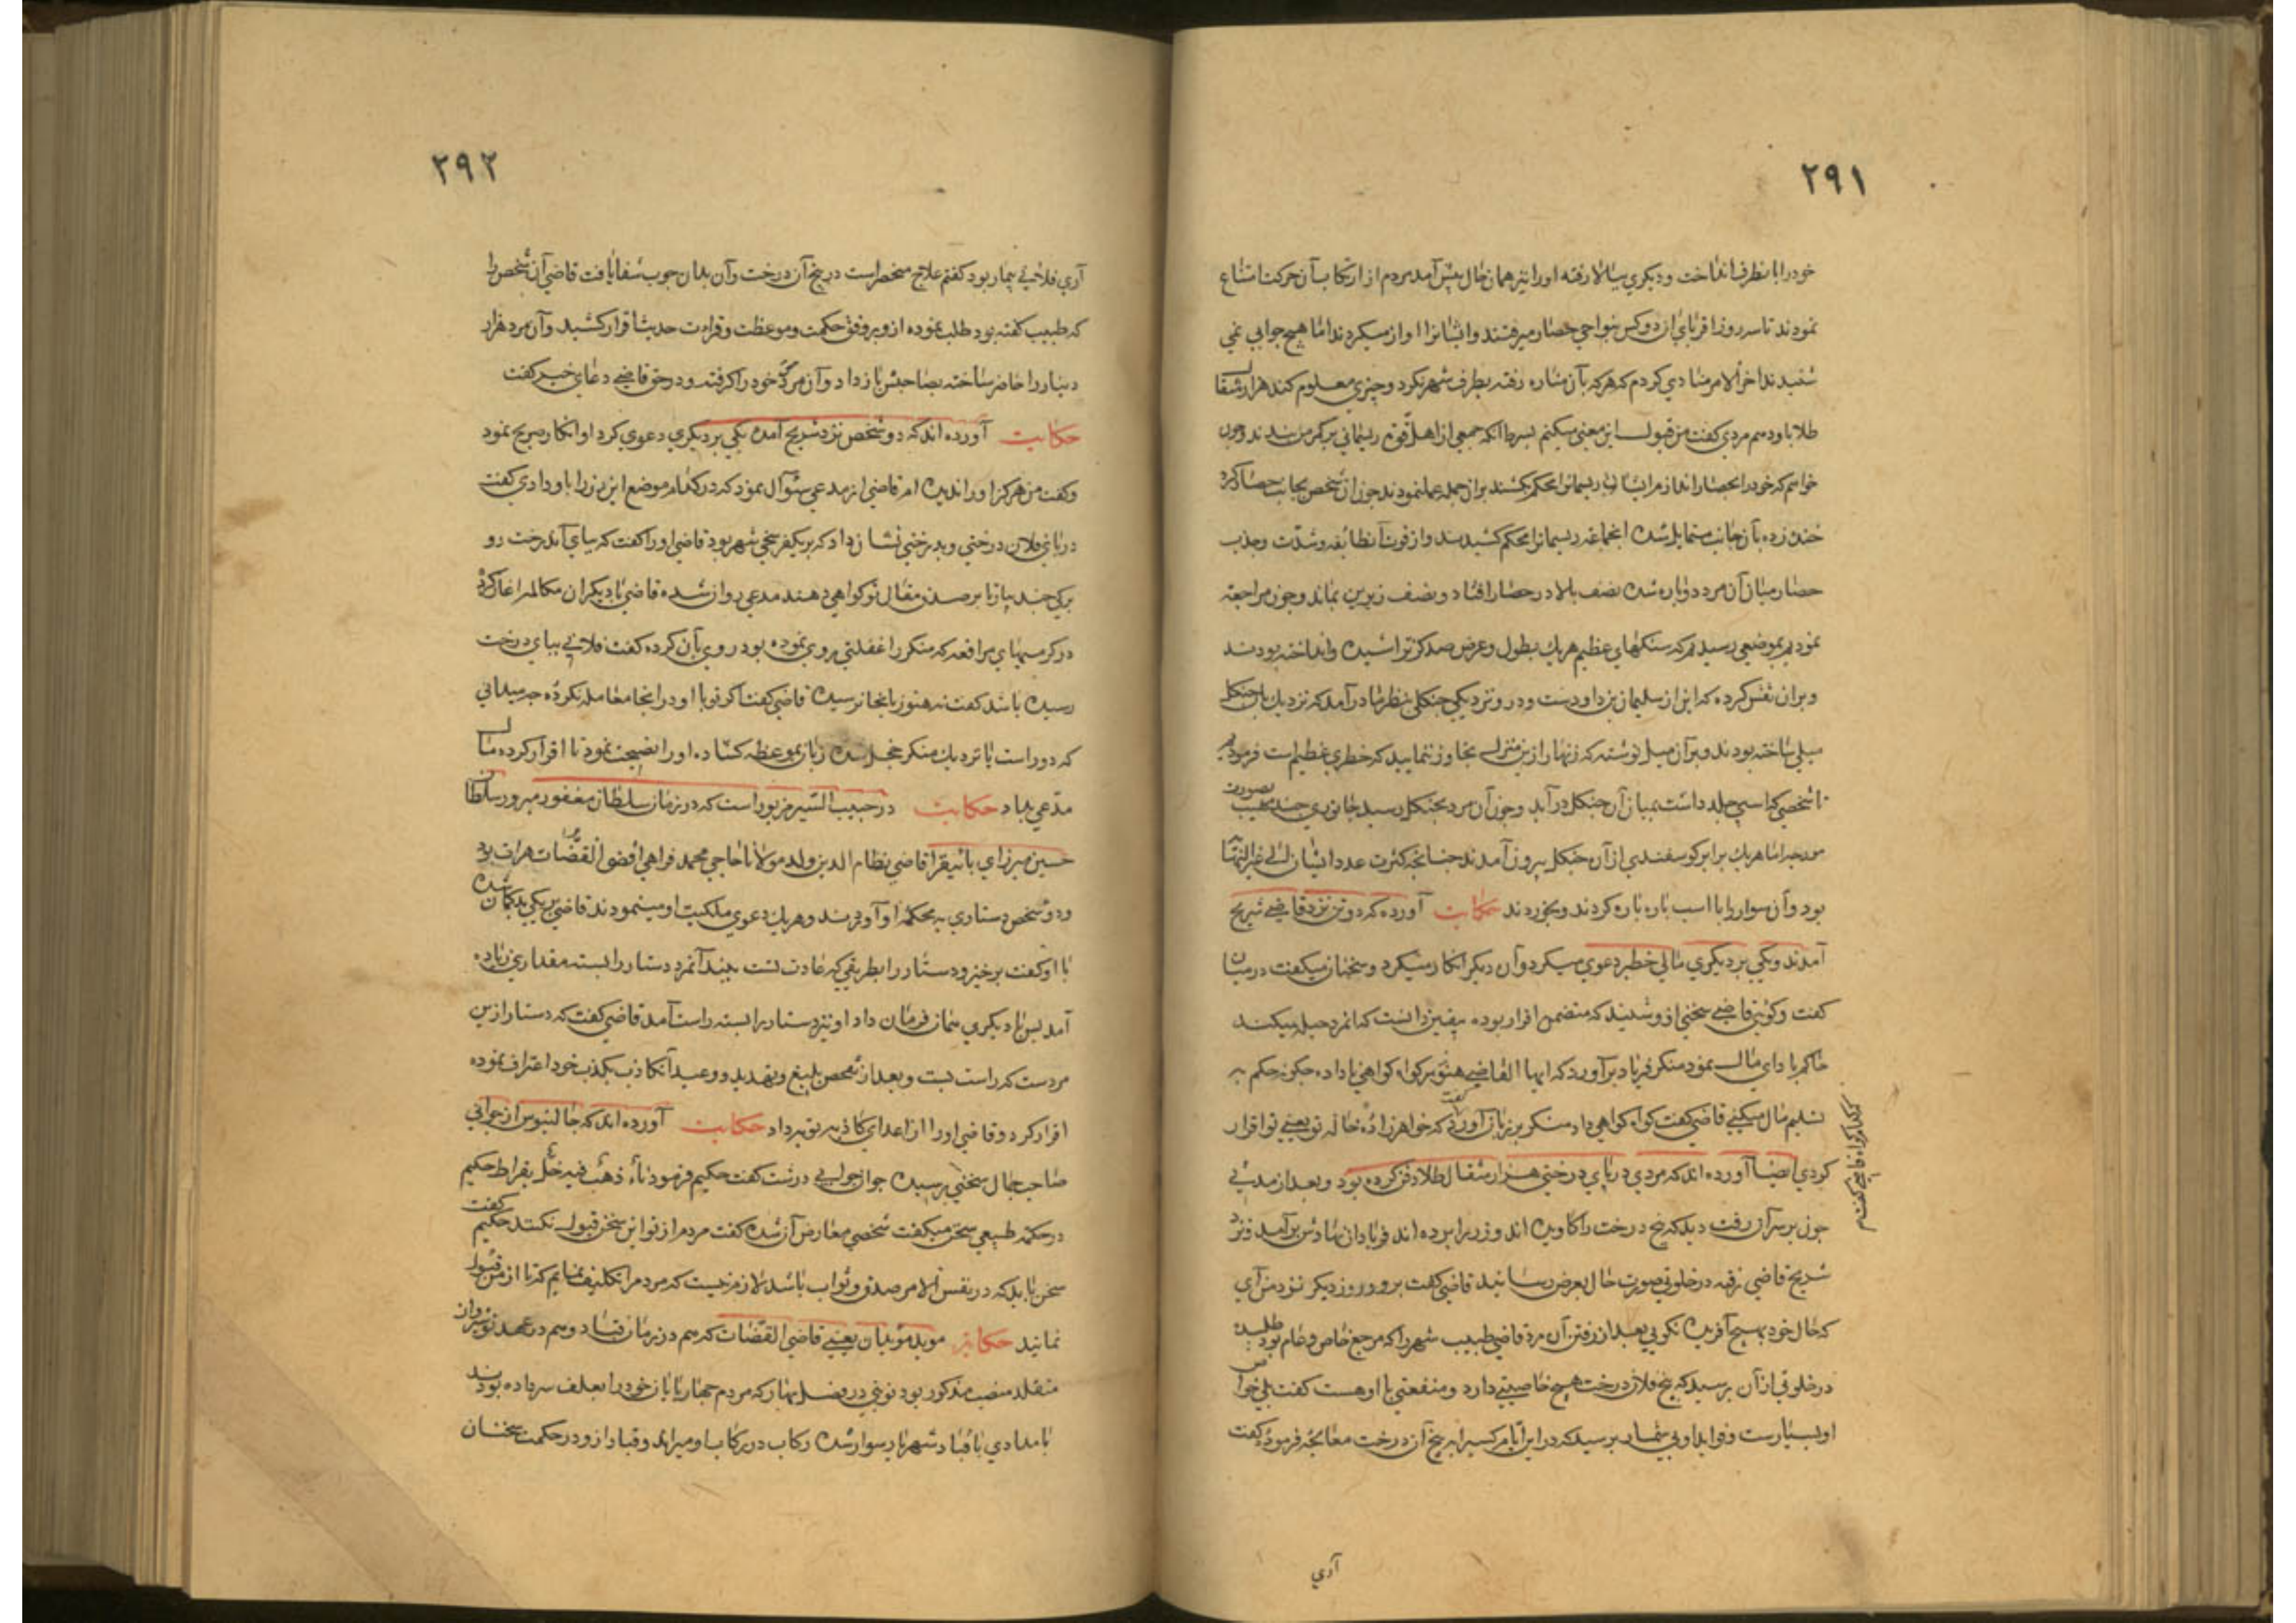 ۲۹۱
خود را بانطرف انداخت و دیگری ببالا رفته او را نیز همان حال پیش آمد مردم از ارتکاب آن حرکت امتناع
نمودند تا سه روز اقربای آن دو کس بنواحی حصار میرفتند و ایشانرا اواز میکردند اما هیچ جوابی نمی
شنیدند اخر الامر منادی کردم که هر که بآن مناره رفته بطرف شهر نکرد و چیزی معلوم کند هزار مثقال
طلا باو دهم مردی گفت من قبول این معنی میکنم بشرط آنکه جمعی از اهل قوت ریسمانی بر کمر من بندند و چون
خواهم که خود را بحصار اندازم ایشان ریسمانرا محکم بکشند بر آن جمله عمل نمودند چون آن شخص بجانب حصار نگاه کرد
خنده زده بآن جانب متمایل شد انجماعه ریسمانرا محکم کشیدند و از قوت آنطائفه و شدت و جذب
حصار میان آن مرد دو پاره شده نصف بالا در حصار افتاد و نصف زیرین بماند و چون مراجعت
نمودیم بموضعی رسیدیم که سنگهای عظیم هر یک بطول و عرض صد گز تراشیده و انداخته بودند
و بران نقش کرده که این از سلیمان بن داودست و در نزدیکی جنگلی بنظر ما در آمد که نزدیک بان جنگل
میلی ساخته بودند و بر آن میل نوشته که زنهار از ین منزل تجاوز ننمایید که خطری عظیم است فرمودیم
تا شخصی که اسبی جلد داشت بمیان آن جنگل در آید و چون آن مرد بجنگل رسید جانوری چند مهیب بصورت
مورچه اما هر یک برابر گوسفندی از آن جنگل بیرون آمدند چنانچه کثرت عدد ایشان الی غیر النهایه
بود و آن سوار را با اسب پاره پاره کردند و بخوردند حکایت آورده که دو تن نزد قاضی شریح
آمدند و یکی بر دیگری مالی خطیر دعوی میکرد و آن دیگر انکار میکرد و سخنان میکفت در میان
گفت و گوی قاضی سخنی از و شنید که متضمن اقرار بوده بیقین دانست که انمرد حیله میکند
حاکم بادای مال نمود منکر فریاد بر آورد که ایها القاضی هنوز گواه گواهی ناداده چگونه حکم به
تسلیم مال میکنی قاضی گفت گواه گواهی داد منکر بر زبان آورد که خواهر زاده خاله تو یعنی تو اقرار
کردی ایضا آورده اند که مردی در پای درختی هزار مثقال طلا دفن کرده بود و بعد از مدتی
چون بر سر آن رفت دید که بیخ درخت را کاویده اند و زر را برده اند فریاد از نهادش بر آمد و نزد
شریح قاضی رفته در خلوتی صورت حال بعرض رسانید قاضی گفت برو و روز دیگر نزد من آی
که حال خود بهیچ آفریده نگویی بعد از رفتن آن مرد قاضی طبیب شهر را که مرجع خاص و عام بود طلبیده
در خلوتی از آن پرسید که بیخ فلان درخت هیچ خاصیتی دارد و منفعتی با او هست گفت بلی خواص
او بسیارست و فواید او بی شمار پرسید که در این ایام کسی را به بیخ آن درخت معالجه فرموده گفت
آری
۲۹۲
آری فلانی بیمار بود گفتم علاج منحصر است در بیخ آن درخت و آن بدان چوب شفا یافت قاضی آن شخص را
که طبیب گفته بود طلب نموده از و بر وفق حکمت و موعظت و قراءت حدیث اقرار کشید و آن مرد هزار
دینار را حاضر ساخته بصاحبش باز داد و آن مرد خود را گرفته و در حق قاضی دعای خیر گفت
حکایت آورده اند که دو شخص نزد شریح آمده یکی بر دیگری دعوی کرد او انکار صریح نمود
و گفت من هرگز او را ندیده ام قاضی از مدعی سئوال نمود که در کدام موضع این زر را باو دادی گفت
در پای فلان درختی و بدرختی نشان داد که بر یکفرسخی شهر بود قاضی او را گفت که بپای آندرخت رو
برگی چند بیار تا بر صدق مقال تو گواهی دهند مدعی روان شده قاضی با دیگران مکالمه اغاز کرد
در گرمیهای مرافعه که منکر را غفلتی روی نموده بود روی بآن کرده گفت فلانی بپای درخت
رسیده باشد گفت نه هنوز بانجا نرسیده قاضی گفت اگر تو با او در انجا معامله نکرده چه میدانی
که دور است یا نزدیک منکر خجل شده زبان بموعظه گشاد و او را نصیحت نمود تا اقرار کرده مال
مدعی بداد حکایت در حبیب السیر مزبور است که در زمان سلطان مغفور مبرور سلطان
حسین میرزای بایقرا قاضی نظام الدین ولد مولانا حاجی محمد فراهی اقضی القضات هرات بود
و دو شخص دستاری به محکمه او آوردند و هر یک دعوی ملکیت او مینمودند قاضی بر یکی بدگمان شده
با او گفت برخیز و دستار را بطریقی که عادت تست ببند آنمرد دستار را بسته مقداری زیاده
آمد پس با دیگری همان فرمان داد او نیز دستار را بسته راست آمد قاضی گفت که دستار از ین
مردست که راست بست و بعد از تفحص بلیغ و تهدید و وعید آنکاذب بکذب خود اعتراف نموده
اقرار کرد و قاضی او را از اعدای کاذبه توبه داد حکایت آورده اند که جالینوس از جوانی
صاحب جمال سخنی پرسیده جوان جوابی درشت گفت حکیم فرمود اناء ذهب فیه خل بقراط حکیم
در حکمه طبیعی سخن میکفت شخصی معارض آن شده گفت مردم از تو این سخن قبول نکنند حکیم گفت
سخن باید که در نفس الامر صدق و ثواب باشد لازم نیست که مردم را تکلیف نمایم که تا از من قبول
نمایند حکایت موبد موبدان یعنی قاضی القضات که هم در زمان قباد و هم در عهد نوشیروان
متقلد منصب مذکور بود نوبتی در فصل بهار که مردم چهارپایان خود را بعلف سر داده بودند
بامدادی با قباد شهریار سوار شده رکاب در رکاب او میراند و قباد از و در حکمت سخنان